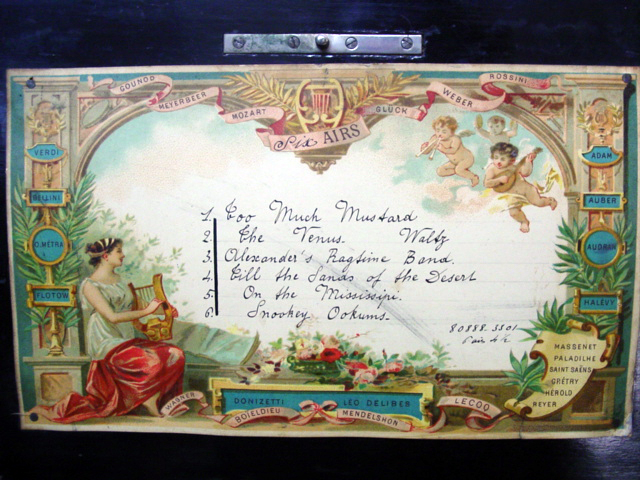 GOUNOD
MEYERBEER
MOZART
GLUCK
WEBER
ROSSINI
Six AIRS
VERDI
BELLINI
O. MÉTRA
FLOTOW
ADAM
AUBER
AUDRAN
HALÉVY
1. Too Much Mustard
2. The Venus. Waltz
3. Alexander's Ragtime Band.
4. Till the Sands of the Desert
5. On the Mississipi.
6. Snookey Ookums.
80888. 5501
Pair 4½
MASSENET
PALADILHE
SAINT SAËNS
GRÉTRY
HEROLD
REYER
WAGNER
DONIZETTI
LÉO DELIBES
BOIELDIEU
MENDELSHON
LECOQ